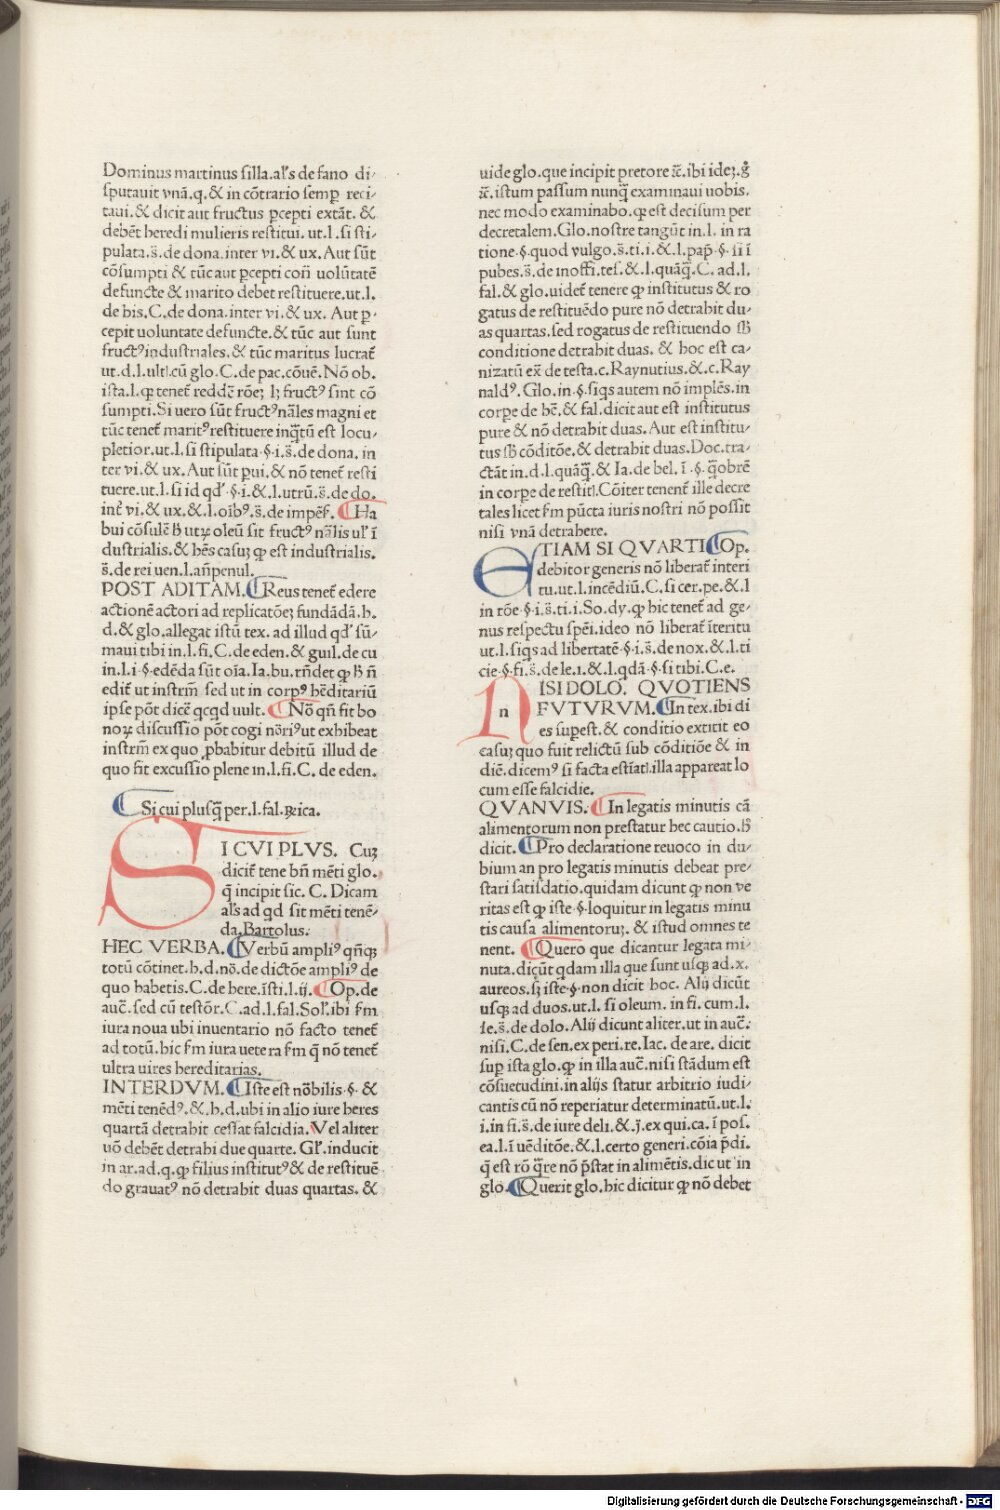 Dominus martinus silla.al's de fano di-
sputauit vnā.q.& in cōtrario semp̲ reci-
taui.& dicit aut fructus p̲cepti extāt.&
debēt heredi mulieris restitui.ut.l.si sti-
pulata.s̄.de dona.inter vi.& ux.Aut sūt
cōsumpti & tūc aut p̲cepti corī uolūtatē
defuncte & marito debet restituere.ut.l.
de his.C.de dona.inter vi.& ux. Aut p̲-
cepit uoluntate defuncte.& tūc aut sunt
fructꝰindustriales.& tūc maritus lucrat̄
ut.d.l.ultl.cū glo.C.de pac.cōuē. Nō ob.
ista.l.ꝙ tenet̄ reddēr rōe; lꝫ fructꝰ sint cō
sumpti.Si uero sūt fructꝰnāles magni et
tūc tenet̄ maritꝰrestituere inqͣtū est locu-
pletior.ut.l.si stipulata.§.i.s̄.de dona. in
ter vi.& ux. Aut sūt p̲ui.& nō tenet̄ resti
tuere.ut.l.si id qd'.§.i.&.l.utrū.s̄.de do.
int̄ vi.& ux.&.l.oībꝰ.s̄.de impēs̄. ¶Ha
bui cōsulē h̄ utꝝ oleū sit fructꝰ nālis ul' ī
dustrialis.& hēs casuꝫ ꝙ est industrialis.
s̄.de rei uen.l.an̄penul.
POST ADITAM.¶Reus tenet̄ edere
actionē actori ad replicatōeꝫ fundādā.h.
d.& glo.allegat istū tex. ad illud qd' sū-
maui tibi in.l.fi.C.de eden.& guil.de cu
in.l.i.§.edēda sūt oīa.Ia.bu.rn̄det ꝙ h̄ n̄
edit̄ ut instrm̄ sed ut in corpꝰ hēditariū
ipse pōt dicē qcqd uult. ¶Nō qn̄ fit bo
noꝝ discussio pōt cogi nōriꝰut exhibeat
instrm̄ ex quo p̲babitur debitū illud de
quo fit excussio plene in.l.fi.C. de eden.
¶Si cui plusqͣ per.l.fal.Rica.
SI CVI PLVS. Cuꝫ
dicit̄ tene bn̄ mēti glo.
q̄ incipit sic. C. Dicam
al's ad qd sit mēti tenē-
da.Bartolus.
HEC VERBA.¶Verbū ampliꝰ qn̄qꝫ
totū cōtinet.h.d.nō.de dictōe ampliꝰ de
quo habetis.C.de here.īsti.l.ij. ¶Op.de
auc̄.sed cū testōr.C.ad.l.fal.Sol'.ibi s̄m
iura noua ubi inuentario nō facto tenet̄
ad totū.hic s̄m iura uetera s̄m q̄ nō tenet̄
ultra uires hereditarias.
INTERDVM.¶Iste est nōbilis.§. &
mēti tenēdꝰ.&.h.d.ubi in alio iure heres
quartā detrahit cessat falcidia. Vel aliter
uō debēt detrahi due quarte. Gl'.inducit
in ar.ad.q.ꝙ filius institutꝰ& de restituē
do grauatꝰ nō detrahit duas quartas. &
uide glo.que incipit pretore ic̄.ibi ideꝫ.g̊
ic̄.istum passum nunqͣ examinaui uobis.
nec modo examinabo.ꝙ est decisum per
decretalem.Glo.nostre tangūt in.l. in ra
tione.§.quod vulgo.s̄.ti.i.&.l.pap̲.§.si ī
pubes.s̄.de inoffi.tes̄.&.l.quāqͣ.C. ad.l.
fal.& glo.uidet̄ tenere ꝙ institutus & ro
gatus de restituēdo pure nō detrahit du-
as quartas.sed rogatus de restituendo sb̄
conditione detrahit duas. & hoc est ca-
nizatū ex̄ de testa.c. Raynutius.&.c.Ray
naldꝰ. Glo.in.§.siqs autem nō implēs.in
corpe de hē.& fal.dicit aut est institutus
pure & nō detrahit duas. Aut est institu-
tus sb̄ cōditōe.& detrahit duas.Doc.tra-
ctāt in.d.l.quāqͣ.& Ia.de bel. ī.§. qͣobrē
in corpe de restitl.Cōiter tenent̄ ille decre
tales licet s̄m pūcta iuris nostri nō possit
nisi vnā detrahere.
ETIAM SI QVARTI¶Op.
debitor generis nō liberat̄ interi
tu.ut.l.incēdiū.C.si cer.pe.&.l
in rōe.§.i.s̄.ti.i.So.dy.ꝙ hic tenet̄ ad ge-
nus respectu spēi.ideo nō liberat̄ īteritu
ut.l.siqs ad libertatē.§.i.s̄.de nox.&.l.ti
cie.§.fi.s̄.de le.i.&.l.qdā.§.si tibi.C.e.
n
NISI DOLO. QVOTIENS
FVTVRVM.¶In tex.ibi di
es supest.& conditio extitit eo
casuꝫ quo fuit relictū sub cōditiōe & in
diē.dicemꝰ si facta estīatl.illa appareat lo
cum esse falcidie.
QVANVIS.¶In legatis minutis cā
alimentorum non prestatur hec cautio.h̄
dicit.¶Pro declaratione reuoco in du-
bium an pro legatis minutis debeat pre-
stari satisdatio.quidam dicunt ꝙ non ve
ritas est ꝙ iste.§.loquitur in legatis minu
tis causa alimentoruꝫ. & istud omnes te
nent. ¶Quero que dicantur legata mi-
nuta.dicūt qdam illa que sunt usqꝫ ad.x.
aureos.sꝫ iste.§.non dicit hoc. Alij dicūt
usqꝫ ad duos.ut.l. si oleum. in fi. cum.l.
se.s̄.de dolo. Alij dicunt aliter.ut in auc̄.
nisi.C.de sen.ex peri.re.Iac. de are. dicit
sup̲ ista glo.ꝙ in illa auc̄.nisi stādum est
cōsuetudini.in alijs statur arbitrio iudi-
cantis cū nō reperiatur determinatū.ut.l.
i.in fi.s̄.de iure deli.&.j.ex qui.ca. ī pos̄.
ea.l.ī uēditōe.&.l.certo generi.cōia p̄di.
q̄ est rō qͣre nō p̄stat in alimētis.dic ut in
glo.¶Querit glo.hic dicitur ꝙ nō debet
Digitalisierung gefördert durch die Deutsche Forschungsgemeinschaft - DFG